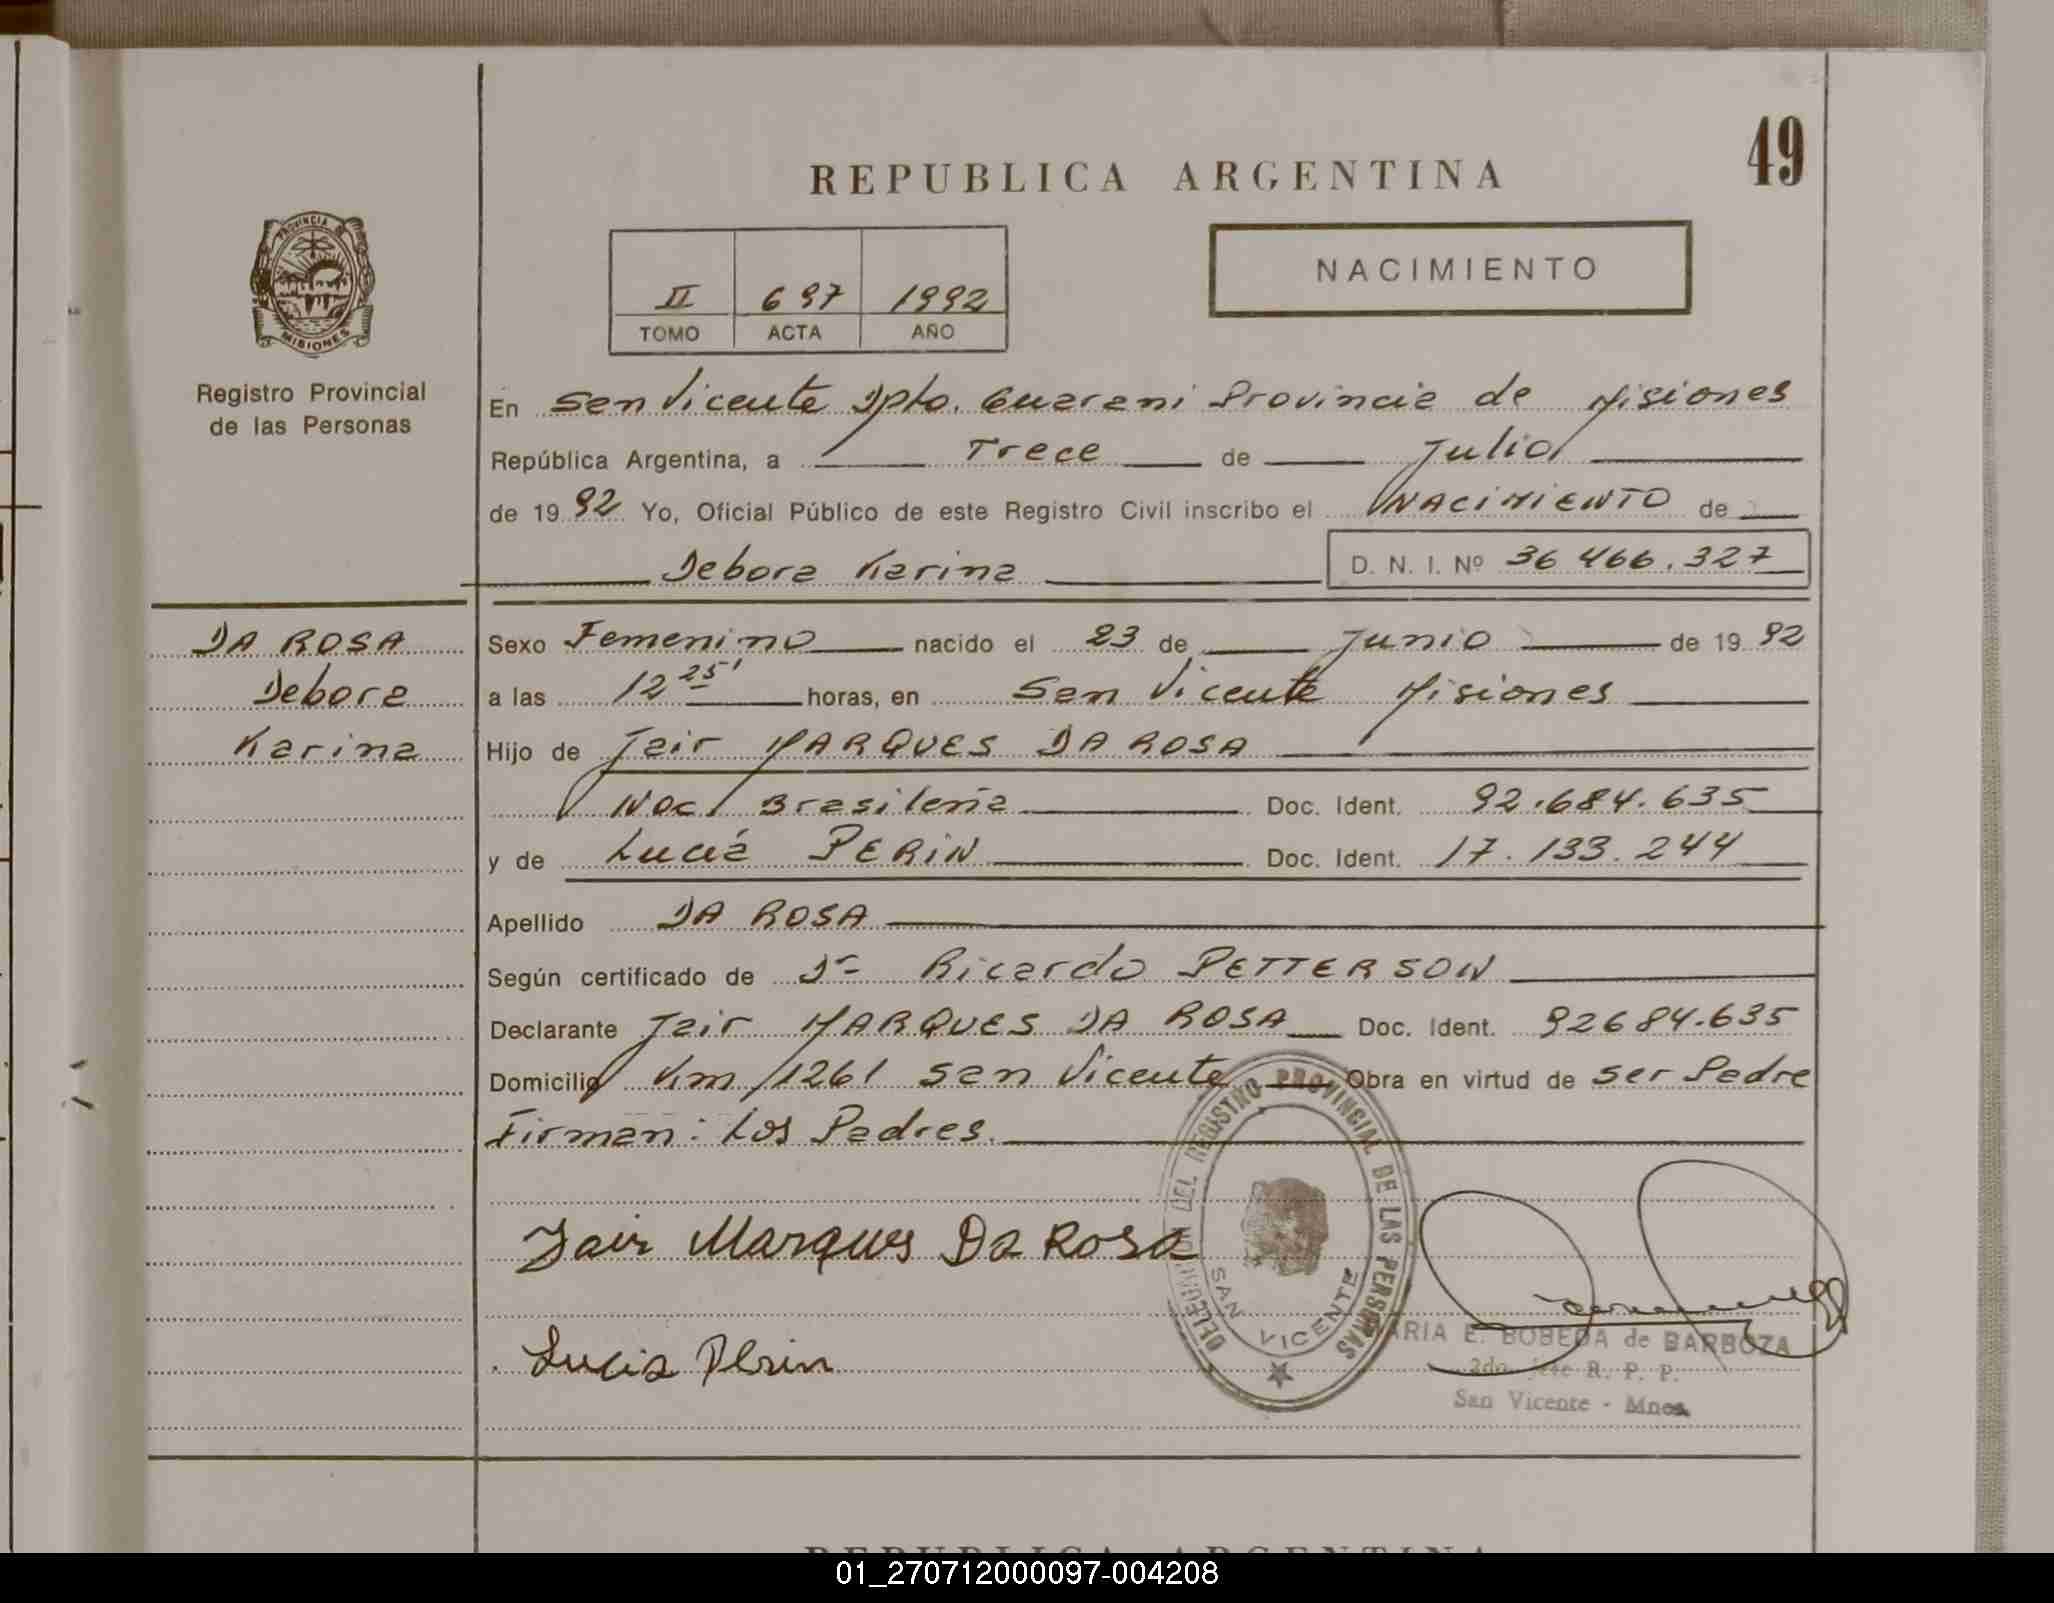 49
REPUBLICA ARGENTINA
PROVINCIA DE
MISIONES
Registro Provincial
de las Personas
II 697 1992
TOMO ACTA AÑO
NACIMIENTO
En San Vicente Dpto. Guarani Provincia de Misiones
República Argentina, a Trece de Julio
de 1992 Yo, Oficial Público de este Registro Civil inscribo el NACIMIENTO de
Debora Karina D. N. I. Nº 36 466.327
DA ROSA
Debora
Karina
Sexo Femenino nacido el 23 de Junio de 1992
a las 12 25' horas, en San Vicente Misiones
Hijo de Jair MARQUES DA ROSA
Nac. Brasileña Doc. Ident. 92.684.635
y de Lucía PERIN Doc. Ident. 17.133.244
Apellido DA ROSA
Según certificado de Dr Ricardo PETTERSON
Declarante Jair MARQUES DA ROSA Doc. Ident. 92684.635
Domicilio Km 1261 San Vicente Obra en virtud de ser Padre
Firman: Los Padres.
Jair Marques Da Rosa
Lucia Perin
DELEGACION DEL REGISTRO PROVINCIAL DE LAS PERSONAS
SAN VICENTE
MARIA E. BOBEDA de BARBOZA
2do. Jefe R. P. P.
San Vicente - Mnes.
REPUBLICA ARGENTINA
01_270712000097-004208